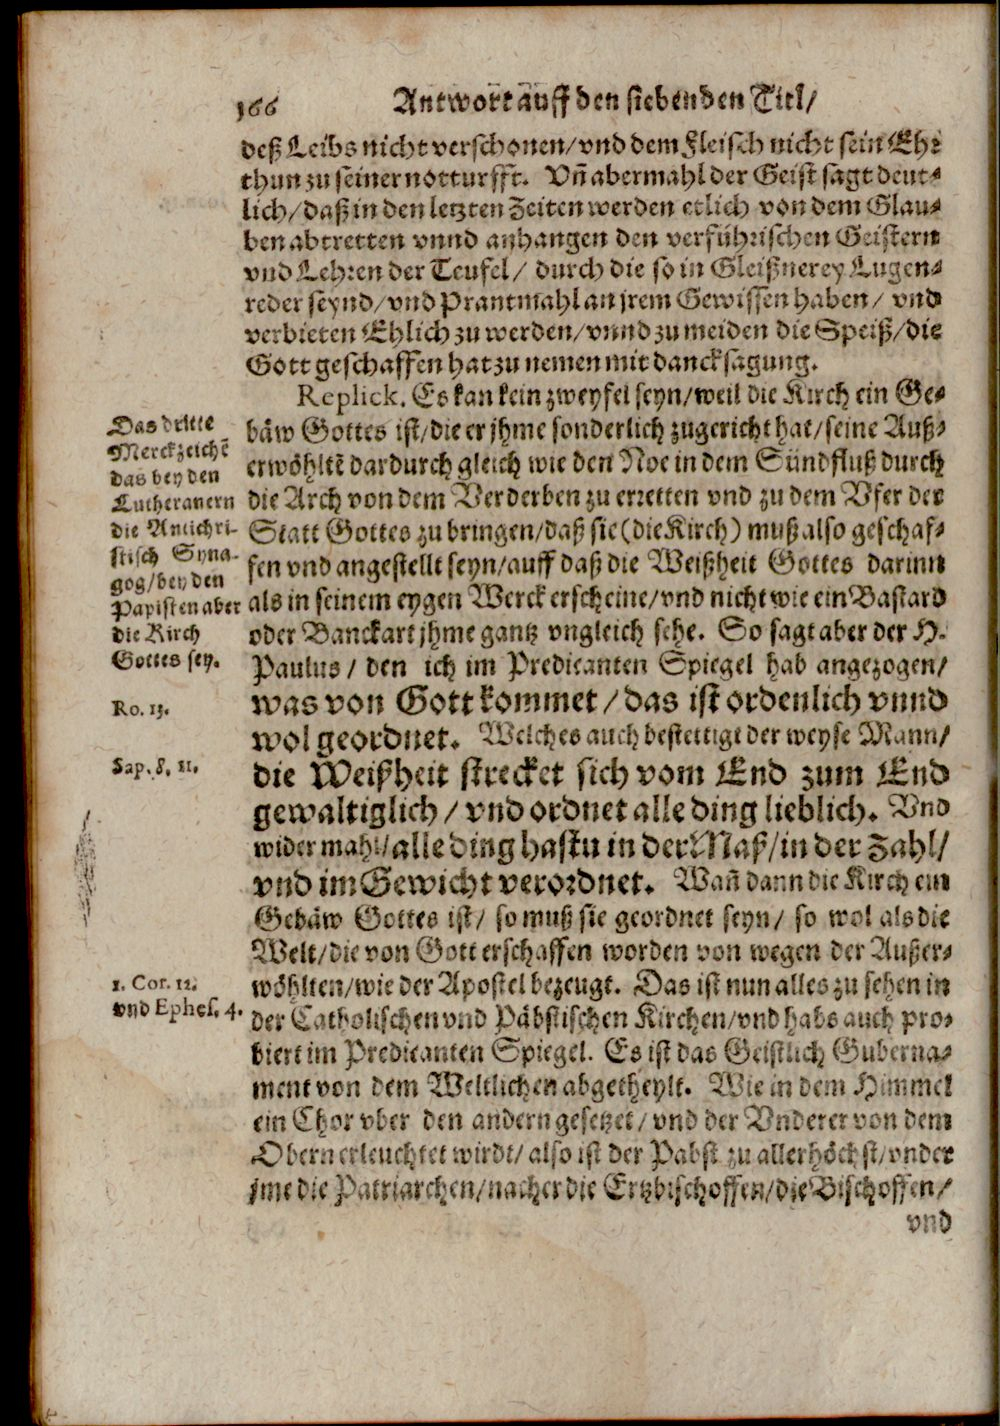 166 Antwort auff den siebenden Titl/
deß Leibs nicht verschonen/vnd dem Fleisch nicht sein Ehr
thun zu seiner notturfft. Vñ abermahl der Geist sagt deut-
lich/daß in den letzten Zeiten werden etlich von dem Glau-
ben abtretten vnnd anhangen den verführischen Geistern
vnd Lehren der Teufel/ durch die so in Gleißnerey Lugen-
reder seynd/vnd Prantmahl an jrem Gewissen haben/ vnd
verbieten Ehlich zu werden/vnnd zu meiden die Speiß/die
Gott geschaffen hat zu nemen mit dancksagung.
Replick. Es kan kein zweyfel seyn/weil die Kirch ein Ge-
bäw Gottes ist/die er jhme sonderlich zugericht hat/seine Auß-
erwöhltẽ dardurch gleich wie den Noe in dem Sündfluß durch
die Arch von dem Verderben zu erretten vnd zu dem Vfer der
Statt Gottes zu bringen/daß sie (die Kirch) muß also geschaf-
fen vnd angestellt seyn/auff daß die Weißheit Gottes darinn
als in seinem eygen Werck erscheine/vnd nicht wie ein Bastard
oder Banckart jhme gantz vngleich sehe. So sagt aber der H.
Paulus/ den ich im Predicanten Spiegel hab angezogen/
was von Gott kommet/das ist ordenlich vnnd
wol geordnet. Welches auch bestettigt der weyse Mann/
die Weißheit strecket sich vom End zum End
gewaltiglich/vnd ordnet alle ding lieblich. Vnd
wider mahl/alle ding hastu in der Maß/in der Zahl/
vnd im Gewicht verordnet. Wañ dann die Kirch ein
Gebäw Gottes ist/ so muß sie geordnet seyn/ so wol als die
Welt/die von Gott erschaffen worden von wegen der Außer-
wöhlten/wie der Apostel bezeugt. Das ist nun alles zu sehen in
der Catholischen vnd Päbstischen Kirchen/vnd habs auch pro-
biert im Predicanten Spiegel. Es ist das Geistlich Guberna-
ment von dem Weltlichen abgetheylt. Wie in dem Himmel
ein Chor vber den andern gesetzet/ vnd der Vnderer von dem
Obern erleuchtet wirdt/also ist der Pabst zu allerhöchst/vnder
jme die Patriarchen/nacher die Ertzbischoffen/die Bischoffen/
vnd
Das dritte
Merckzeichẽ
das bey den
Lutheranern
die Antichri-
stisch Syna-
gog/bey den
Papisten aber
die Kirch
Gottes sey.
Ro. 13.
Sap. 8. 11.
1. Cor. 12.
vnd Ephes. 4.